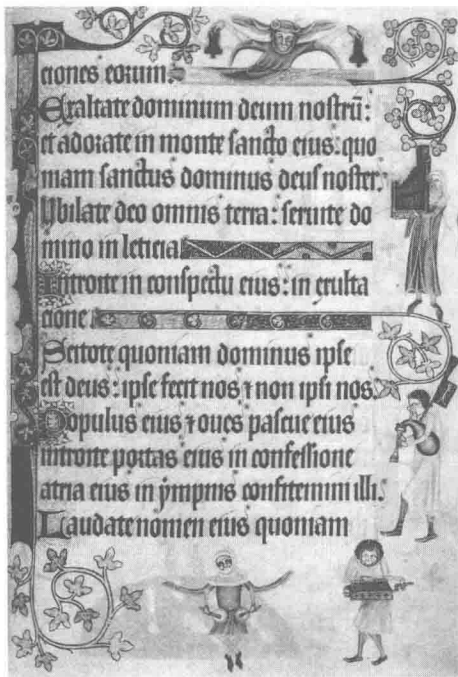 ciones eorum.
Exaltate dominum deum nostrū:
et adorate in monte sancto eius: quo
niam sanctus dominus deus noster.
Jubilate deo omnis terra: seruite do
mino in leticia
Introite in conspectu eius: in exulta
cione.
Scitote quoniam dominus ipse
est deus: ipse fecit nos ⁊ non ipsi nos.
Populus eius ⁊ oues pascue eius
introite portas eius in confessione
atria eius in ympnis confitemini illi.
Laudate nomen eius quoniam